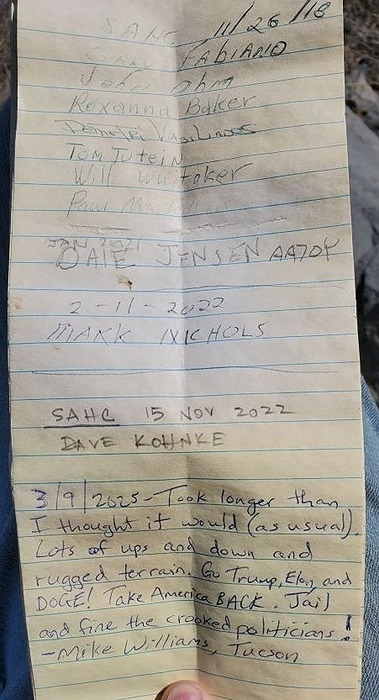 SAHC 11/26/18
FABIANO
John Ohm
Roxanna Baker
Tom Jutein
Will Whitaker
Paul
JAN 2021
DALE JENSEN AA7DY
2-11-2022
MARK NICHOLS
SAHC 15 NOV 2022
DAVE KOHNKE
3/9/2025-Took longer than
I thought it would (as usual).
Lots of ups and down and
rugged terrain. Go Trump, Elon, and
DOGE! Take America BACK. Jail
and fine the crooked politicians!
-Mike Williams, Tucson